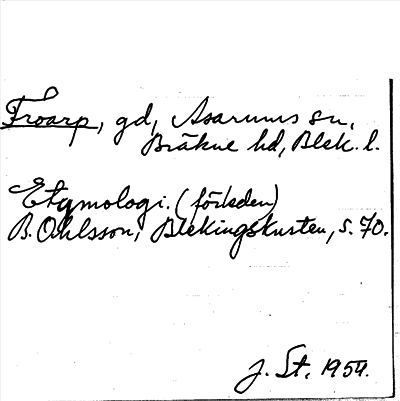 Froarp, gd, Asarums sn,
Bräkne hd, Blek. l.
Etymologi. (förleden)
B. Ohlsson, Blekingskusten, s. 70.
J. St. 1954.